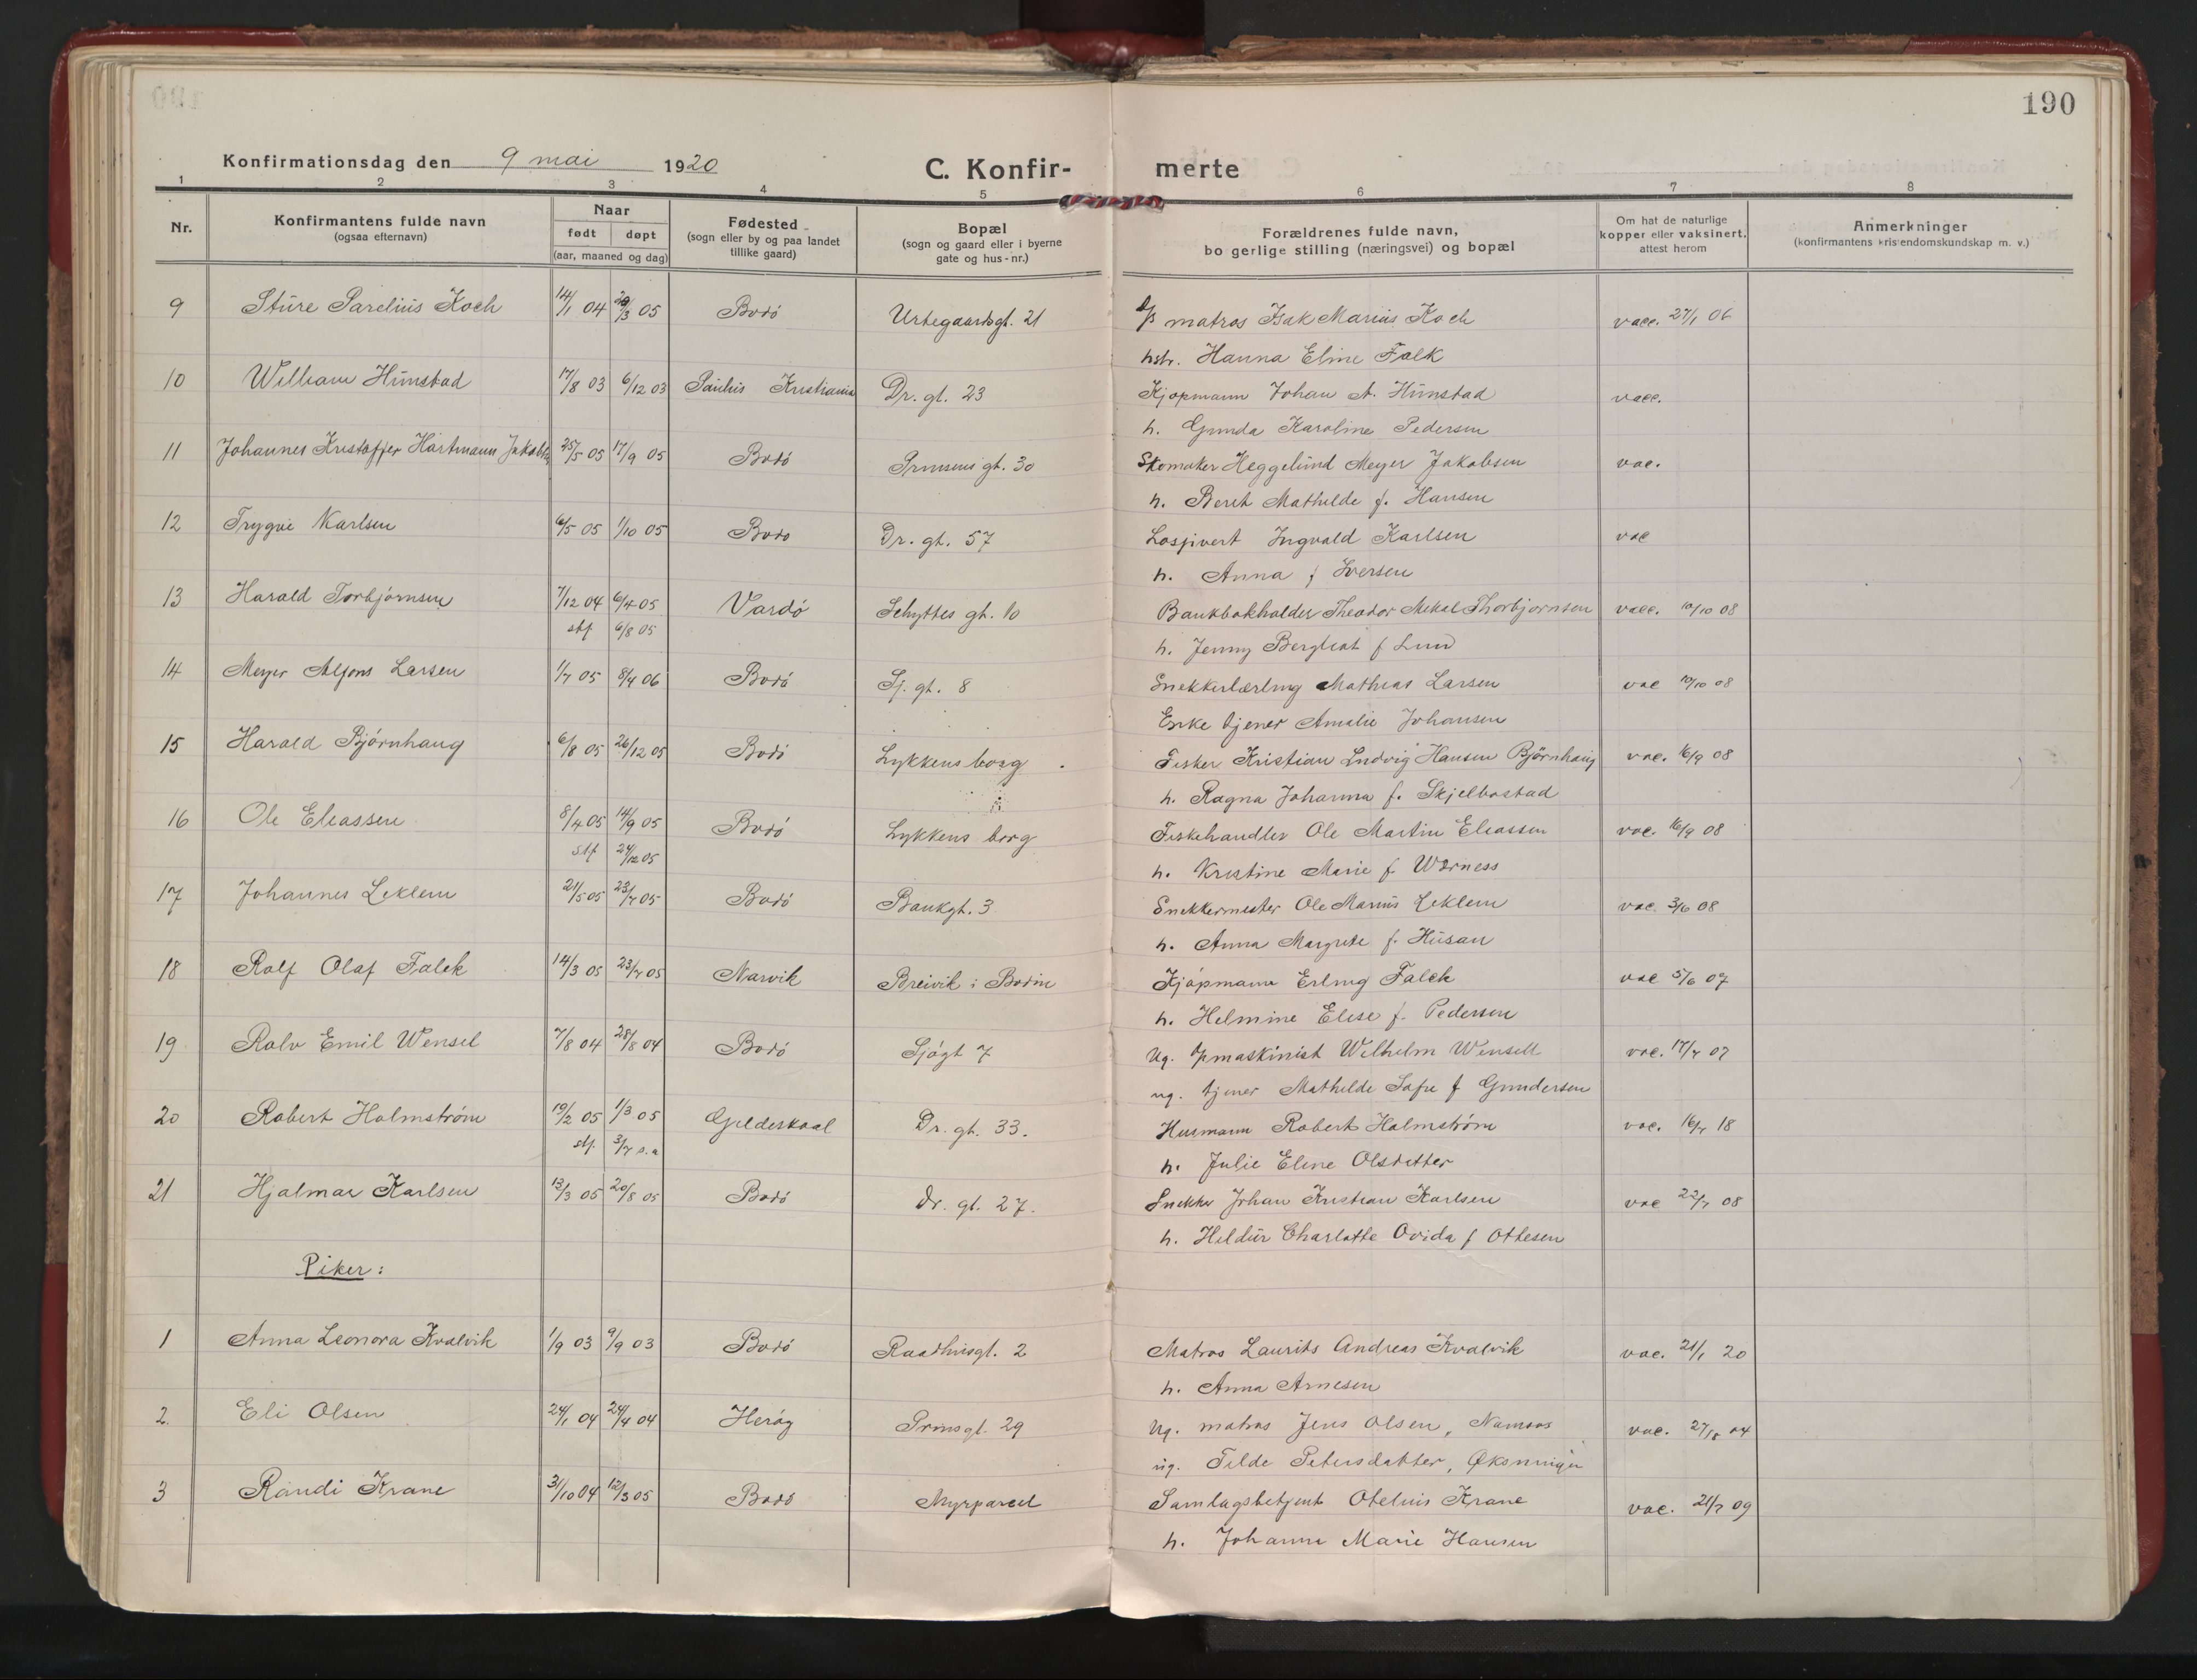 190
Konfirmationsdag den 9 mai 1920 C. Konfir- merte
1 2 3 4 5 6 7 8
Nr. Konfirmantens fulde navn (ogsaa efternavn) Naar født døpt (aar, maaned og dag) Fødested (sogn eller by og paa landet tillike gaard) Bopæl (sogn og gaard eller i byerne gate og hus-nr.) Forældrenes fulde navn, bo gerlige stilling (næringsvei) og bopæl Om hat de naturlige kopper eller vaksinert, attest herom Anmerkninger (konfirmantens kristendomskundskap m. v.)
9 Sture Sarelius Koch 14/1 04 /3 05 Bodö Urtegaardsgt. 21 matros Isak Marius Koch vacc. 27/1 06
hstr. Hanna Eline Falk
10 William Hunstad 17/8 03 6/12 03 Paulus Kristiania Dr. gt. 23 Kjøpmann Johan A. Hunstad vacc.
h. Gunda Karoline Pedersen
11 Johannes Kristoffer Hartmann Jakobsen 25/5 05 17/9 05 Bodö Prinsens gt. 30 Skomaker Heggelund Meyer Jakobsen vac.
h. Beret Mathilde f. Hansen
12 Trygve Karlsen 6/5 05 1/10 05 Bodo Dr. gt. 57 Losjivert Ingvald Karlsen vac
h. Anna f Iversen
13 Harald Torbjørnsen 7/12 04 6/4 05 Vardö Schyttes gt. 10 Bankbokholder Theodor Mekal Thorbjørnsen vacc. 10/10 08
stf 6/8 05 h. Jenny Bergliot f Lund
14 Meyer Alfons Larsen 1/7 05 8/4 06 Bodö Sj. gt. 8 Snekkerlærling Mathias Larsen vac 10/10 08
Enke tjener Amalie Johansen
15 Harald Bjørnhaug 6/8 05 26/12 05 Bodö Lykkens borg Fisker Kristian Ludvig Hansen Björnhaug vac. 16/9 08
h. Ragna Johanna f. Skjelbostad
16 Ole Eleassen 8/4 05 14/9 05 Bodö Lykkens borg Fiskehandler Ole Martin Eleassen vac. 16/9 08
stf 24/12 05 h. Kristine Marie f Wærness
17 Johannes Leklem 21/5 05 23/7 05 Bodö Bankgt. 3 Snekkermester Ole Marius Leklem vac. 3/6 08
h. Anna Margrete f. Husan
18 Rolf Olaf Falck 14/3 05 23/7 05 Narvik Breivik i Bodin Kjöpmann Erling Falck vac 5/6 07
h. Helmine Elise f. Pedersen
19 Rolv Emil Wensel 7/8 04 28/8 04 Bodö Sjögt 7 Ug. maskinist Wilhelm Wensell vac. 17/7 07
ug. tjener Mathilde Sofie f Gundersen
20 Robert Holmström 19/2 05 1/3 05 Gildeskaal Dr. gt. 33. Husmann Robert Holmström vac. 16/7 18
stf. 3/7 s.a h. Julie Eline Olsdatter
21 Hjalmar Karlsen 13/3 05 20/8 05 Bodö Dr. gt. 27. Snekker Johan Kristian Karlsen vac 22/7 08
h. Hildur Charlotte Ovida f Ottesen
Piker:
1 Anna Leonora Kvalvik 1/9 03 9/9 03 Bodö Raadhusgt. 2 Matros Laurits Andreas Kvalvik vac. 21/1 20
h. Anna Arnesen
2. Eli Olsen 24/1 04 24/4 04 Heröy Prinsgt. 29 Ug. matros Jens Olsen, Namsos vac. 04
ug. Tilde Petersdatter, Øksningen
3 Randi Krane 31/10 04 12/3 05 Bodö Myrparcel Samlagsbetjent Otelius Krane vac. 21/7 09
h. Johanne Marie Hansen